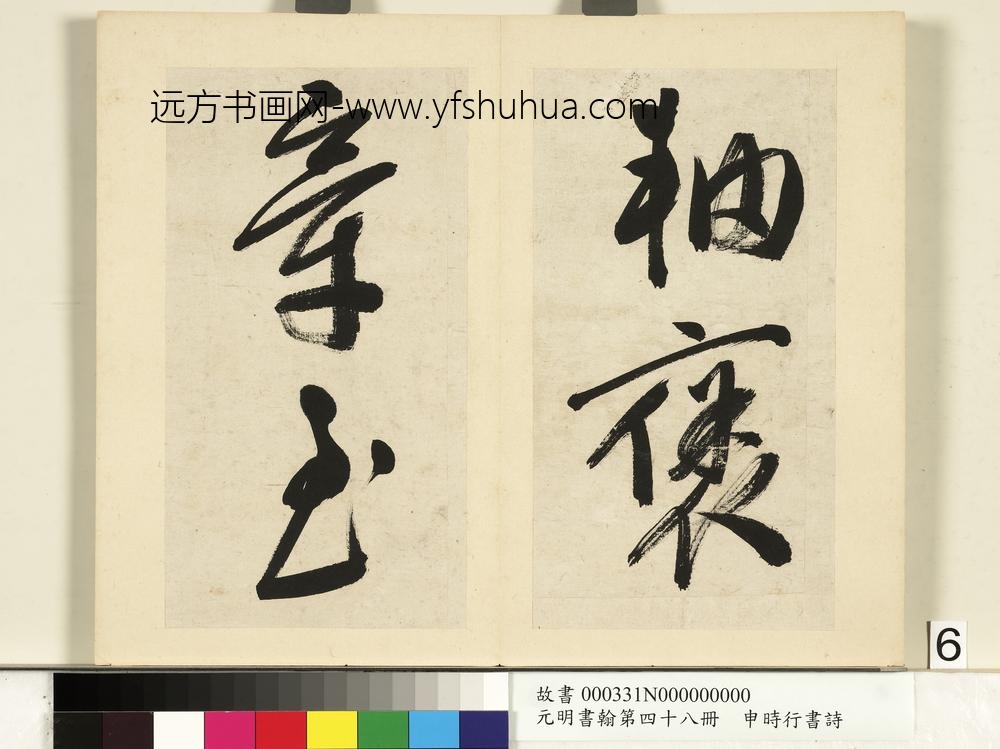 远方书画网-www.yfshuhua.com
袖褒
章玉
6
故書 000331N000000000
元明書翰第四十八冊　申時行書詩